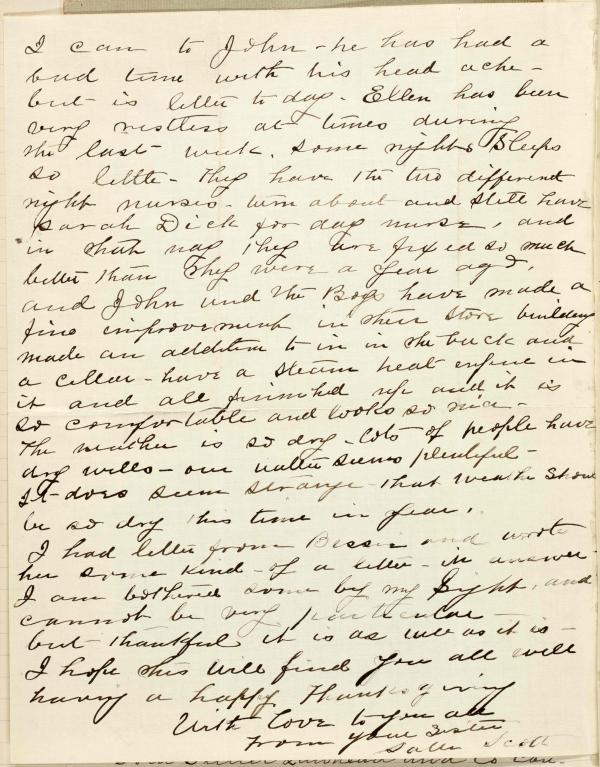 I can to John - he has had a
bad time with his head ache -
but is better to day. Ellen has been
very restless at times during
the last week. some nights Sleeps
so little - they have the two different
night nurses - turn about and still have
Sarah Dick for day nurse, and
in that way they are fixed so much
better than they were a year ago,
and John and the Boys have made a
fine improvement in their store building
made an addition to in in the back and
a cellar - have a steam heat engine in
it and all finished up and it is
so comfortable and looks so nice -
The weather is so dry - lots of people have
dry wells - our water seems plentiful -
It does seem strange that weather should
be so dry this time in year.
I had letter from Bessie and wrote
her some kind - of a letter - in answer
I am bothered some by my Sight, and
cannot be very particular
but thankful it is as well as it is -
I hope this will find you all well
having a happy Thanksgiving
With Love to you all
From your Sister
Scott